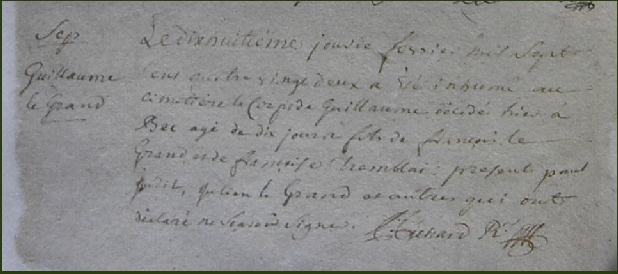 Sep
Guillaume
le Grand
Le dixhuitiéme jour de fevrier mil Sept
cens quatre vingt deux a été inhumé au
cimetière le Corps de Guillaume décédé hier à
Bec agé de dix jours fils de françois le
Grand et de françoise Tremblai: presents paul
Julien le Grand et autres qui ont
déclaré ne Scavoir Signer.